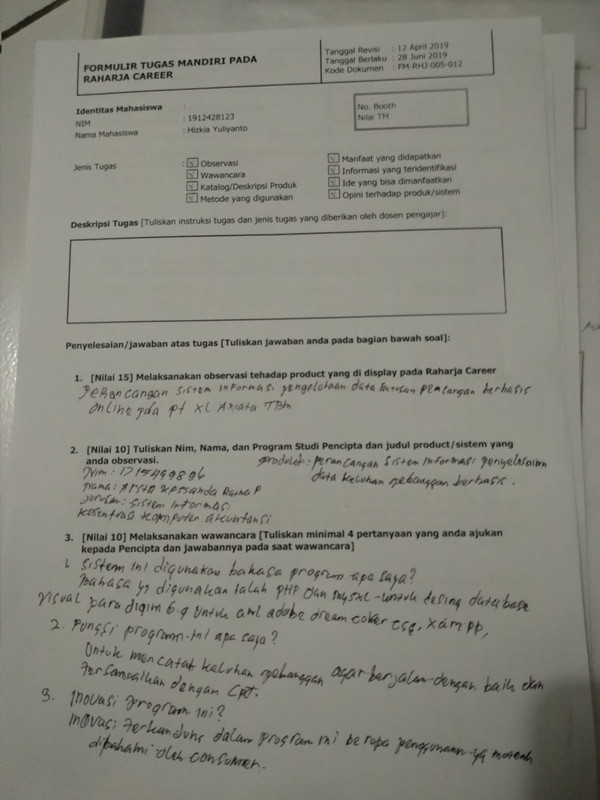 FORMULIR TUGAS MANDIRI PADA
RAHARJA CAREER
Tanggal Revisi : 12 April 2019
Tanggal Berlaku : 28 Juni 2019
Kode Dokumen : FM-RHJ-005-012
Identitas Mahasiswa :
NIM : 1912428123
Nama Mahasiswa : Hizkia Yuliyanto
No. Booth
Nilai TM
Jenis Tugas : Observasi
Wawancara
Katalog/Deskripsi Produk
Metode yang digunakan
Manfaat yang didapatkan
Informasi yang teridentifikasi
Ide yang bisa dimanfaatkan
Opini terhadap produk/sistem
Deskripsi Tugas [Tuliskan instruksi tugas dan jenis tugas yang diberikan oleh dosen pengajar]:
Penyelesaian/jawaban atas tugas [Tuliskan jawaban anda pada bagian bawah soal]:
1. [Nilai 15] Melaksanakan observasi tehadap product yang di display pada Raharja Career
Perancangan sistem informasi pengelolaan data berbasis
online pt XL Axiata
2. [Nilai 10] Tuliskan Nim, Nama, dan Program Studi Pencipta dan judul product/sistem yang
anda observasi.
produlet: perancangan sistem informasi
data keluhan berbasis.
Nim: 1715499896
nama:
jurusan: sistem informasi
komputer akuntansi
3. [Nilai 10] Melaksanakan wawancara [Tuliskan minimal 4 pertanyaan yang anda ajukan
kepada Pencipta dan jawabannya pada saat wawancara]
1. sistem ini digunakan bahasa program apa saja?
Bahasa yg digunakan ialah PHP dan database
visual paradigm 6.4 untuk uml adobe dream xampp,
2. Fungsi program ini apa saja?
Untuk mencatat keluhan agar berjalan dengan baik dan
dengan
3. Inovasi program ini?
inovasi terkandung dalam program ini berupa penggunaan yg mudah
dipahami oleh consumen.